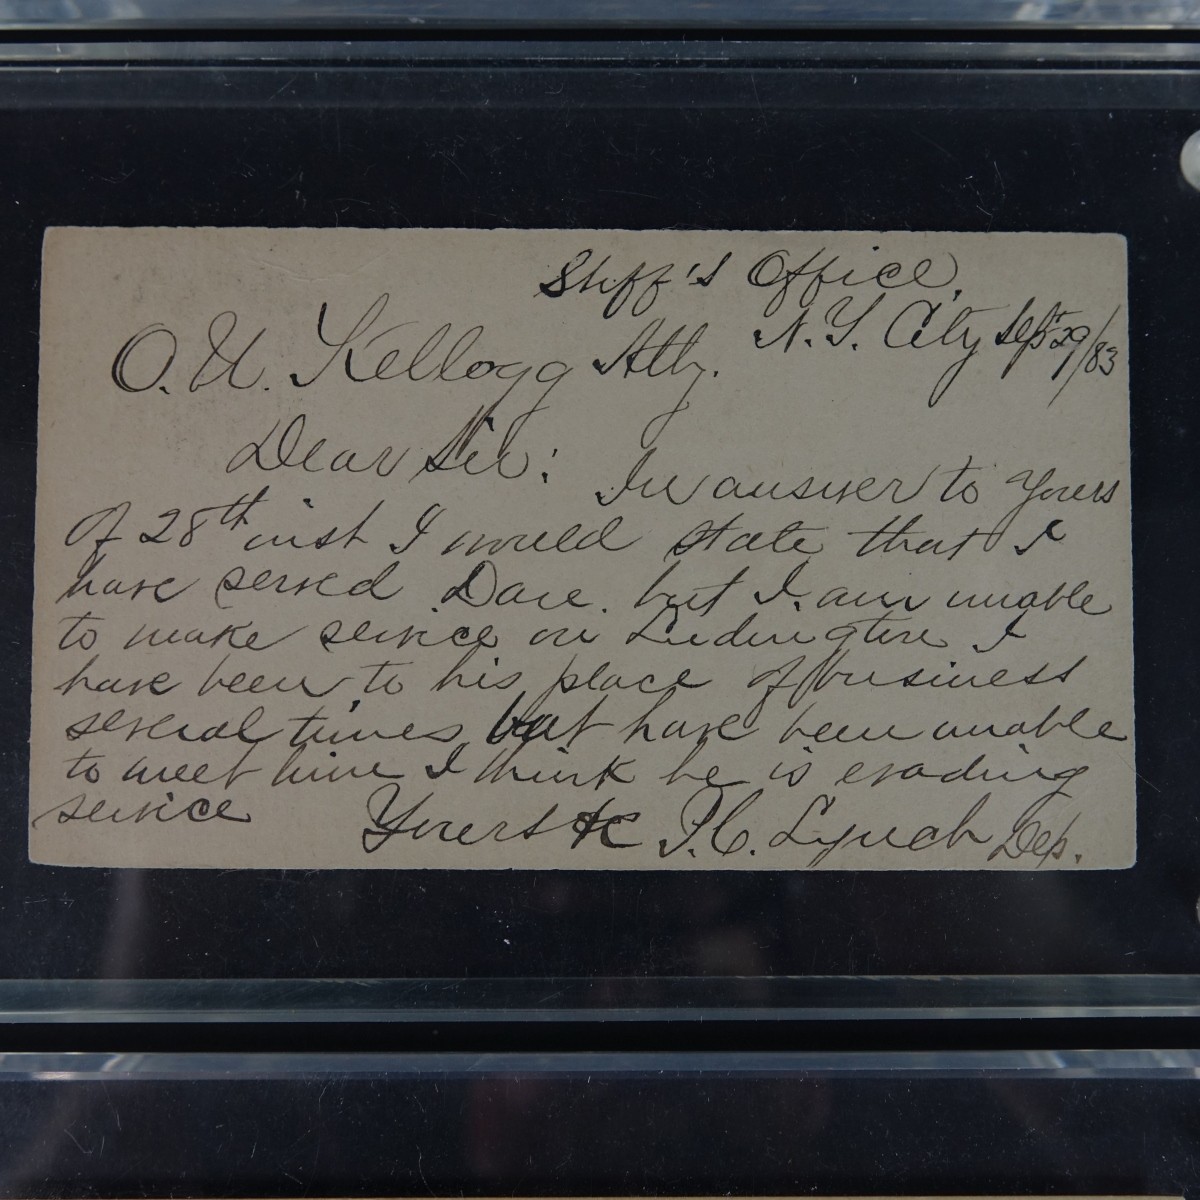 Shff's Office,
N.Y. City Sept 29/83
O.U. Kellogg Atty.
Dear Sir:
In answer to Yours
of 28th inst I would state that I
have served Dave. but I am unable
to make service on Ludington I
have been to his place of business
several times but have been unable
to meet him I think he is evading
service
Yours &c P.C. Lynch Dep.